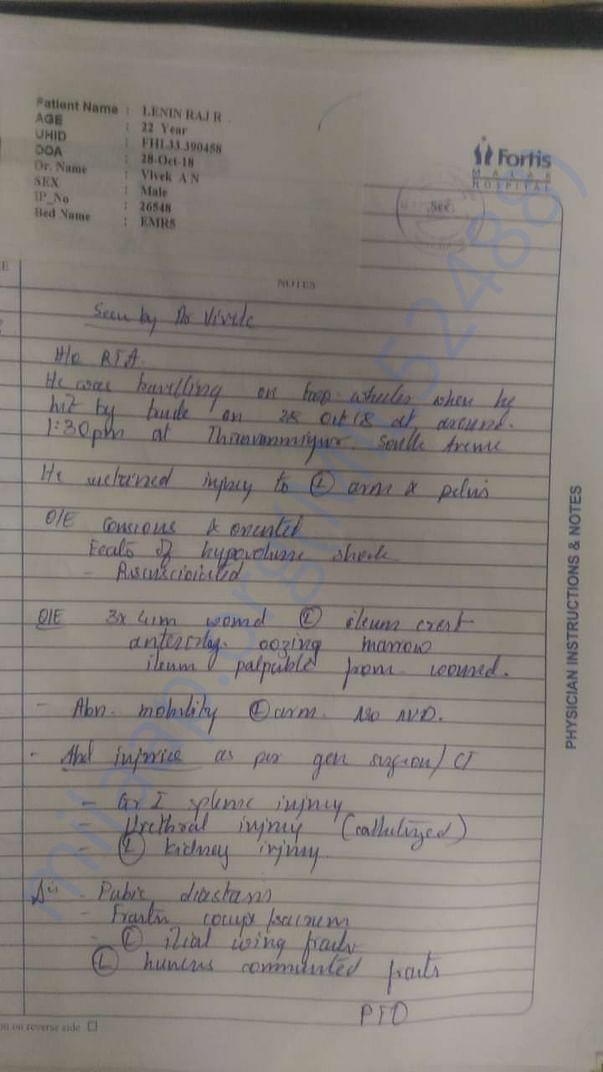 Patient Name : LENIN RAJ R
AGE : 22 Year
UHID : FHL33.390458
DOA : 28-Oct-18
Dr. Name : Vivek A N
SEX : Male
IP_No : 26548
Bed Name : EMR5
Fortis
MALAR
HOSPITAL
NOTES
Seen by Dr Vivek
H/o RTA.
He was travelling on two wheeler when he
hit by on 28 Oct 18 at around
1:30pm at Thiruvanmiyur. South Avenue
He sustained injury to (L) arm & pelvis
O/E Consious & oriented
of hypovolume shock
- Ressusciated
O/E 3x4cm wound (L) ileum crest
anteriorly. oozing marrow
ileum palpable from wound.
- Abn. mobility (L) arm. No NVD.
- Abd injuries as per gen surgeon/CT
- Gr I splenic injury
- Urethral injury (cathetized)
- (L) kidney injury.
- Pubic diastasis
- sacrum
- (L) ilial wing
(L) communited
PTO
on reverse side
PHYSICIAN INSTRUCTIONS & NOTES
milaap.org/MM/524887